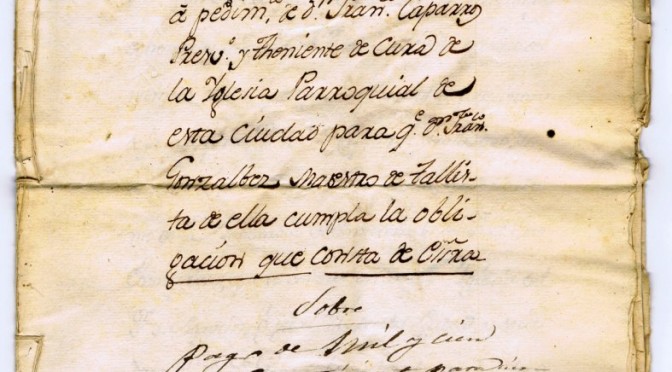 a pedim.to de d.n Fran.co Caparro
Presv.o y Theniente de Cura de
la Yglesia Parroquial de
esta Ciudad para q.e d.n Fran.co
Gonzalbez Maestro de Tallis-
ta de ella cumpla la obli-
gacion que consta de Esc.ra
Sobre
pago de mil y cien